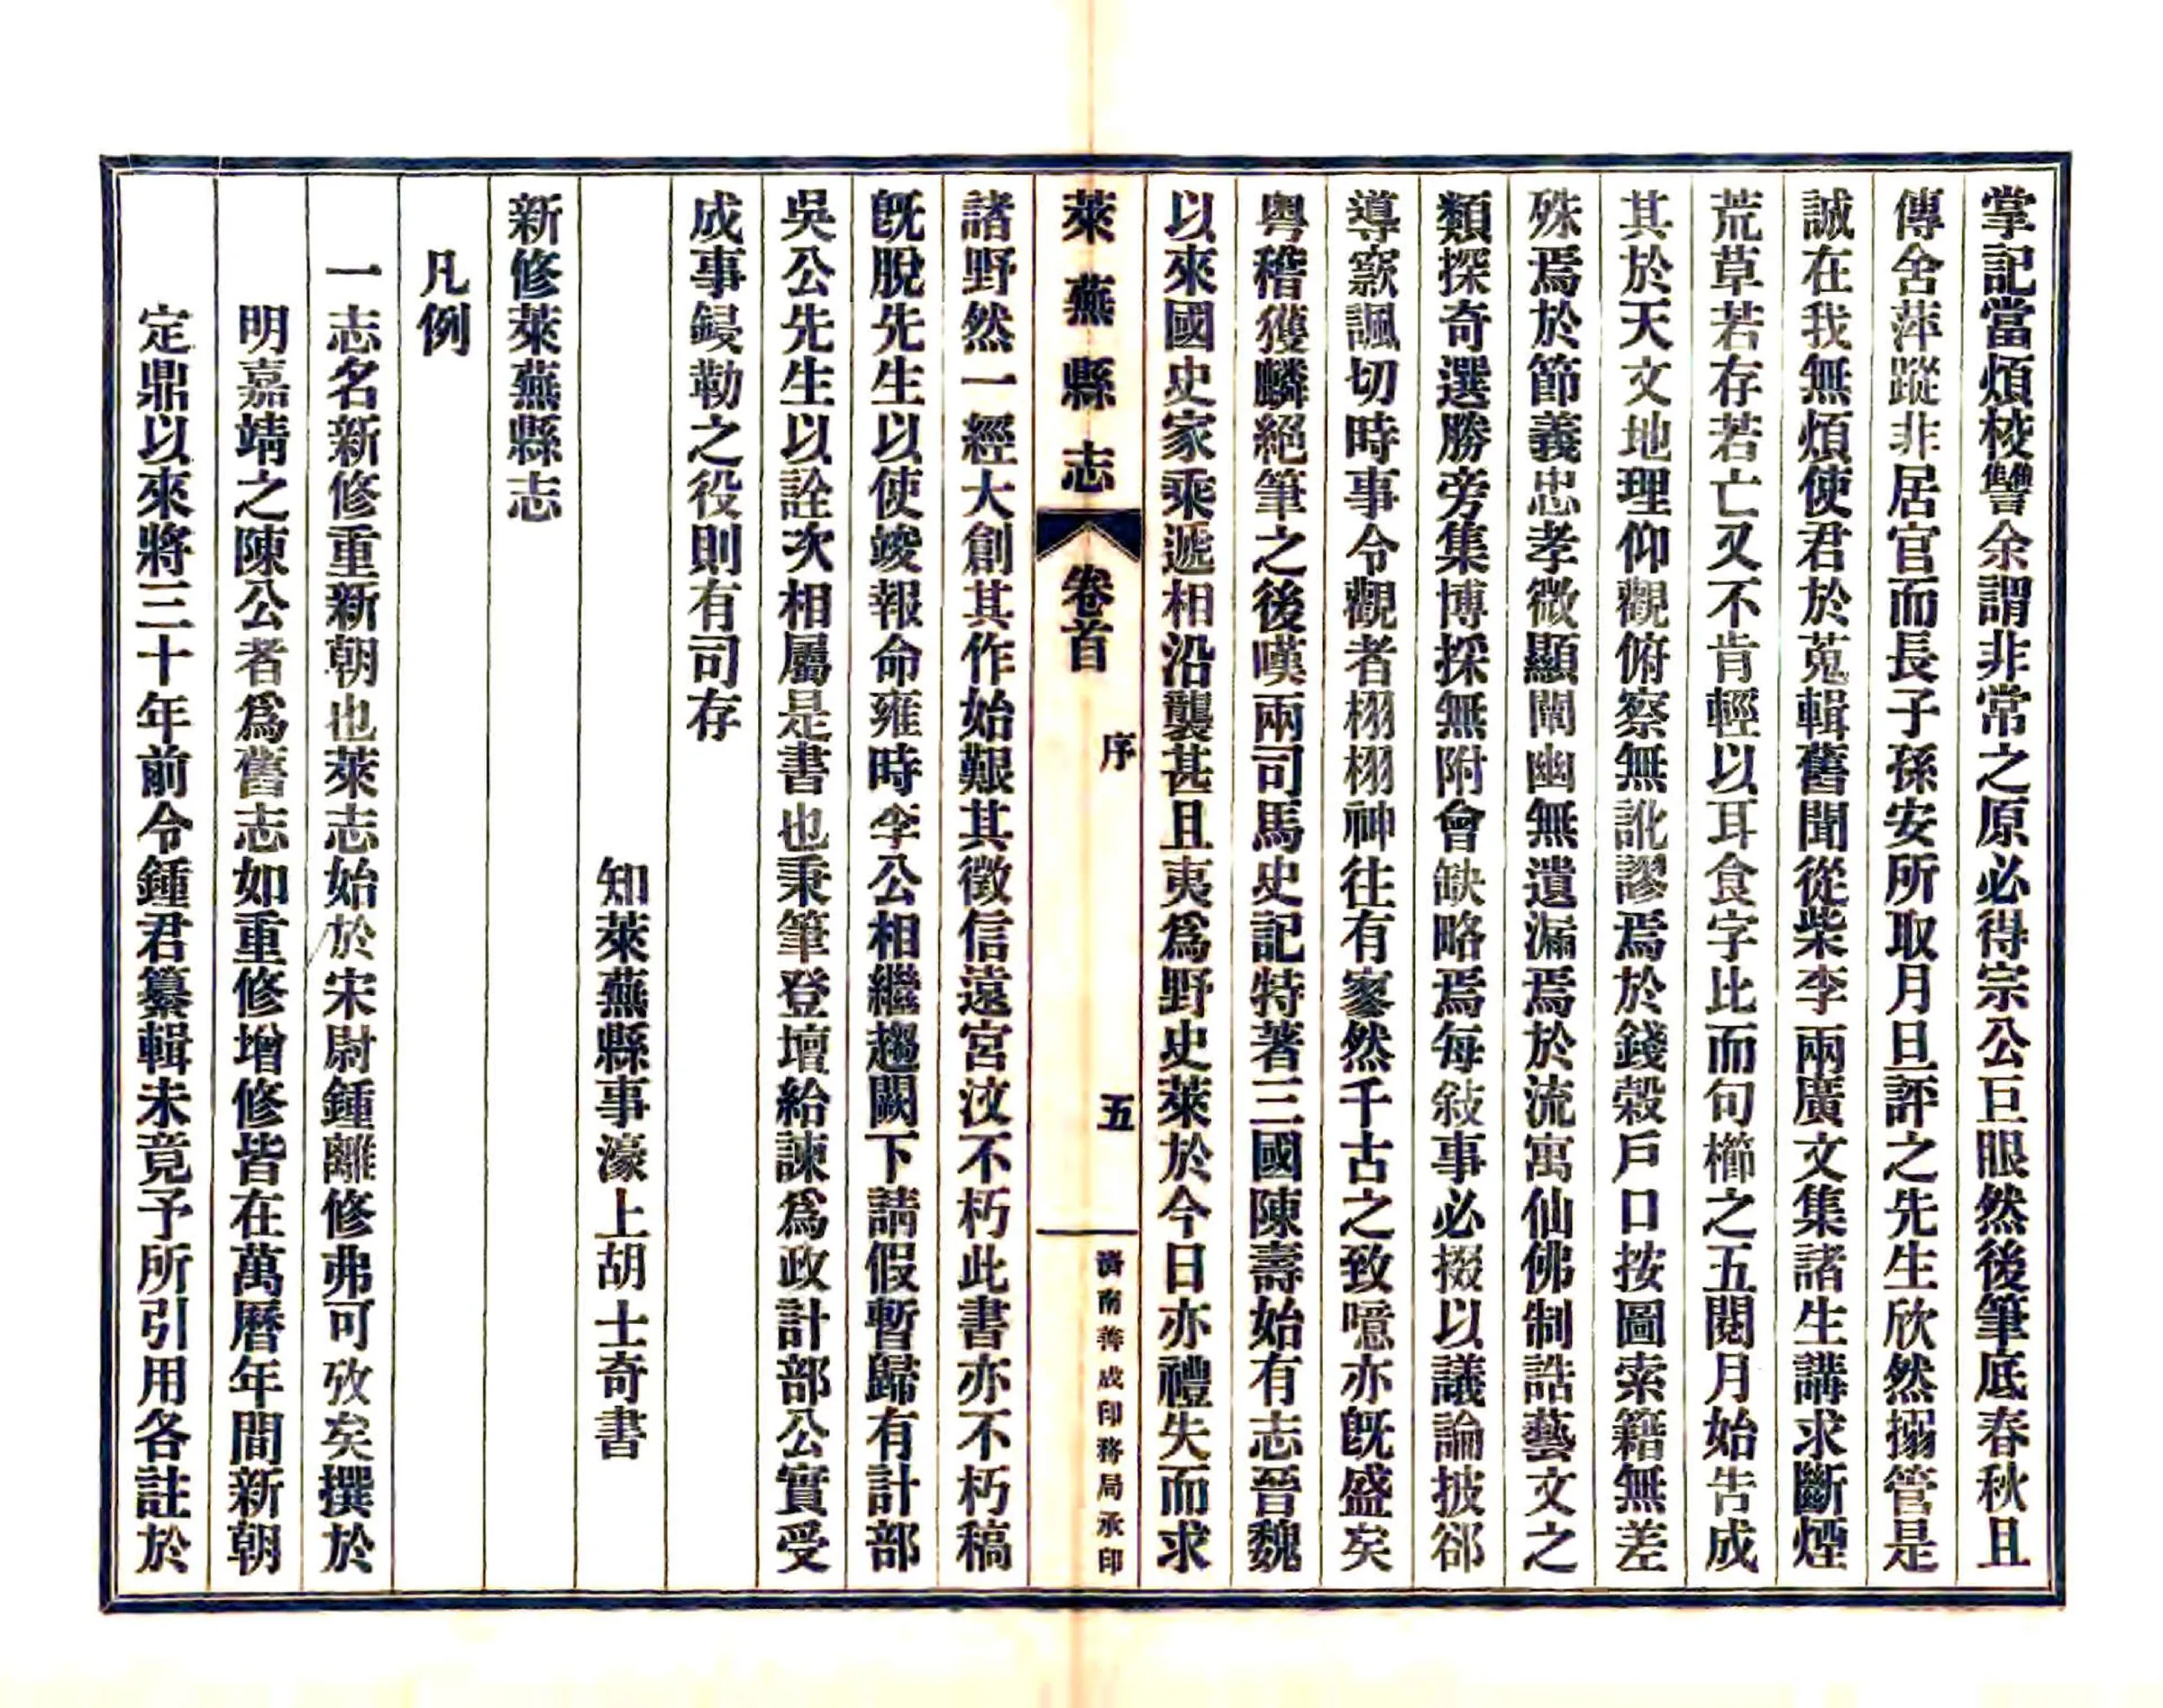 掌記當煩校讐余謂非常之原必得宗公巨眼然後筆底春秋且
傳舍萍蹤非居官而長子孫安所取月旦評之先生欣然搦管是
誠在我無煩使君於蒐輯舊聞從柴李兩廣文集諸生講求斷煙
荒草若存若亡又不肯輕以耳食字比而句櫛之五閱月始告成
其於天文地理仰觀俯察無訛謬焉於錢穀戶口按圖索籍無差
殊焉於節義忠孝微顯闡幽無遺漏焉於流寓仙佛制誥藝文之
類探奇選勝旁集博採無附會缺略焉每敍事必掇以議論披郤
導窾諷切時事令觀者栩栩神往有寥然千古之致噫亦旣盛矣
粤稽獲麟絕筆之後嘆兩司馬史記特著三國陳壽始有志晉魏
以來國史家乘遞相沿襲甚且夷爲野史萊於今日亦禮失而求
萊蕪縣志 卷首 序 五 濟南善成印務局承印
諸野然一經大創其作始艱其徵信遠宮汶不朽此書亦不朽稿
旣脫先生以使竣報命雍時李公相繼趨闕下請假暫歸有計部
吳公先生以詮次相屬是書也秉筆登壇給諫爲政計部公實受
成事鋟勒之役則有司存
知萊蕪縣事濠上胡士奇書
新修萊蕪縣志
凡例
一志名新修重新朝也萊志始於宋尉鍾離修弗可攷矣撰於
明嘉靖之陳公者爲舊志如重修增修皆在萬曆年間新朝
定鼎以來將三十年前令鍾君纂輯未竟予所引用各註於